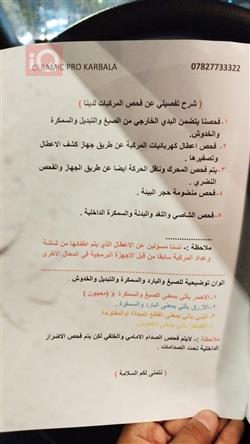 iQ
CERAMIC PRO KARBALA
07827733322
( شرح تفصيلي عن فحص المركبات لدينا )
١- فحصنا يتضمن البدي الخارجي من الصبغ والتبديل والسمكرة
والخدوش.
٢- فحص اعطال كهربائيات المركبة عن طريق جهاز كشف الاعطال
وتصفيرها .
٣- يتم فحص المحرك وناقل الحركة ايضا عن طريق الجهاز والفحص
النضري .
٤- فحص منضومة حجر البيئة .
٥- فحص الشاصي واللغد والبدنة والسمكرة الداخلية .
ملاحظة :- لسنا مسؤلين عن الاعطال الذي يتم اطفائها من شاشة
وعداد المركبة سابقا من قبل الاجهزة البرمجية في المحال الاخرى
الوان توضيحية للصبغ والبارد والسمكرة والتبديل والخدوش.
١-الاحمر يأتي بمعنى الصبغ والسمكرة و (معجون )
٢-الازرق يأتي بمعنى البارد والسمكرة.
٣-البني يأتي بمعنى القطع المبدلة اوالمفتوحة.
٤-الاصفر يأتي بمعنى الخدوش.
ملاحظة :- لايتم فحص الصدام الامامي والخلفي لكن يتم فحص الاضرار
الداخلية تحت الصدامات .
( نتمنى لكم السلامة )